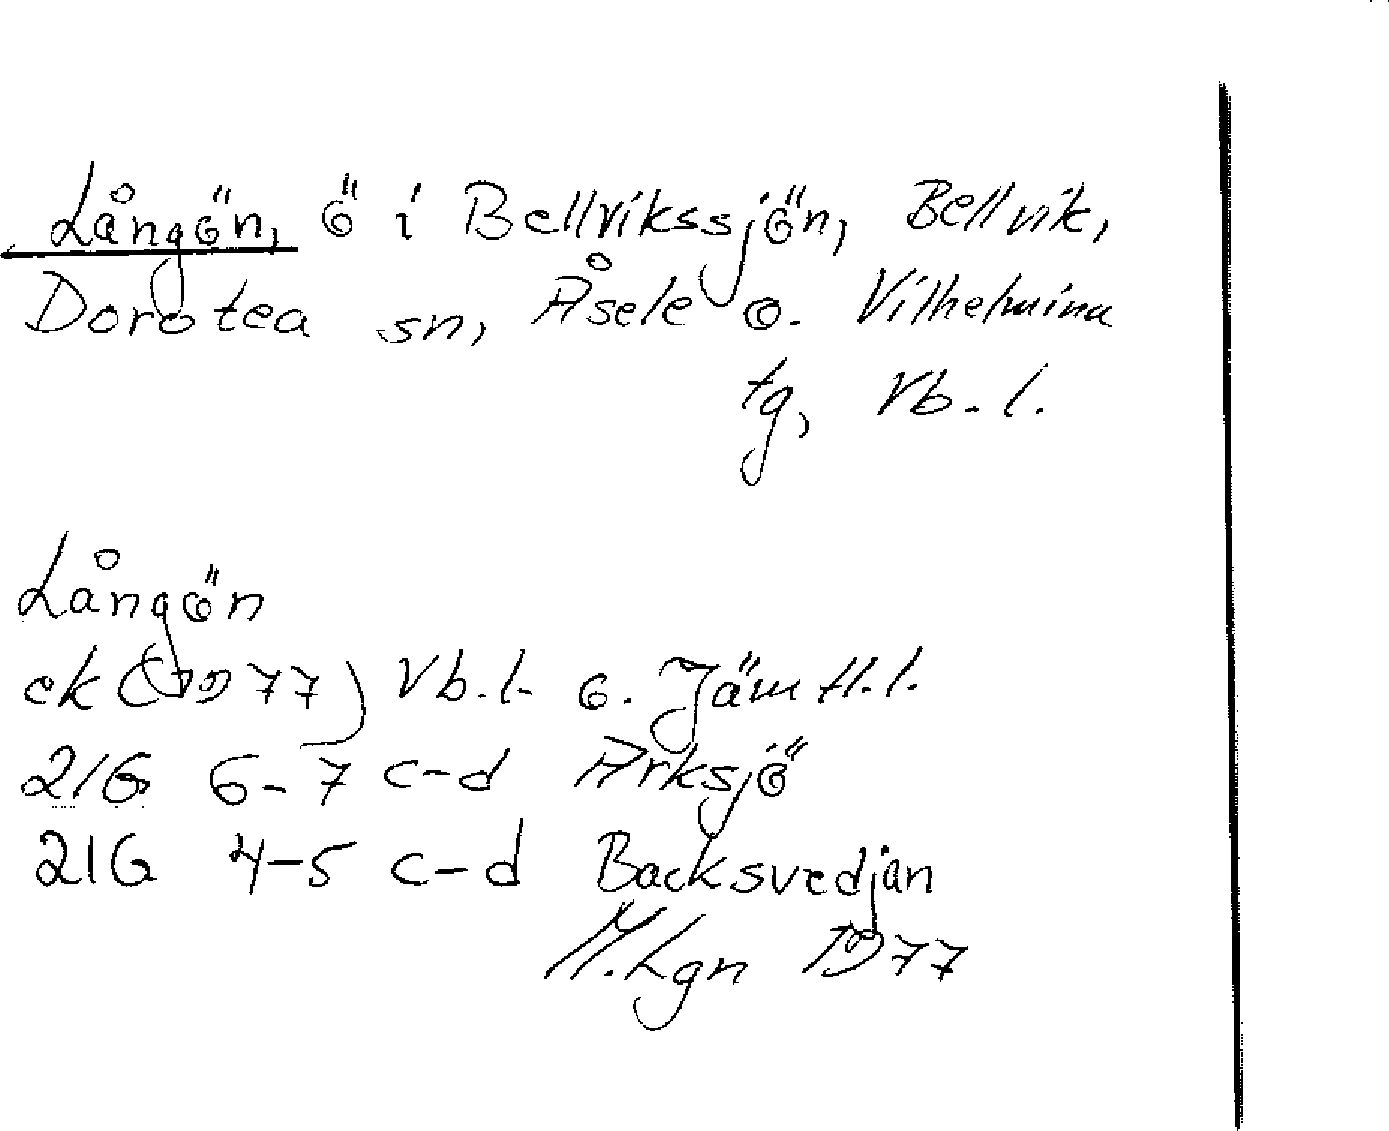 Långön, ö i Bellvikssjön, Bellvik,
Dorotea sn, Åsele o. Vilhelmina
tg, Vb. l.
Långön
ek (1977) Vb. l. o. Jämtl. l.
21G 6-7 c-d Arksjö
21G 4-5 c-d Backsvedjan
M. Lgn 1977